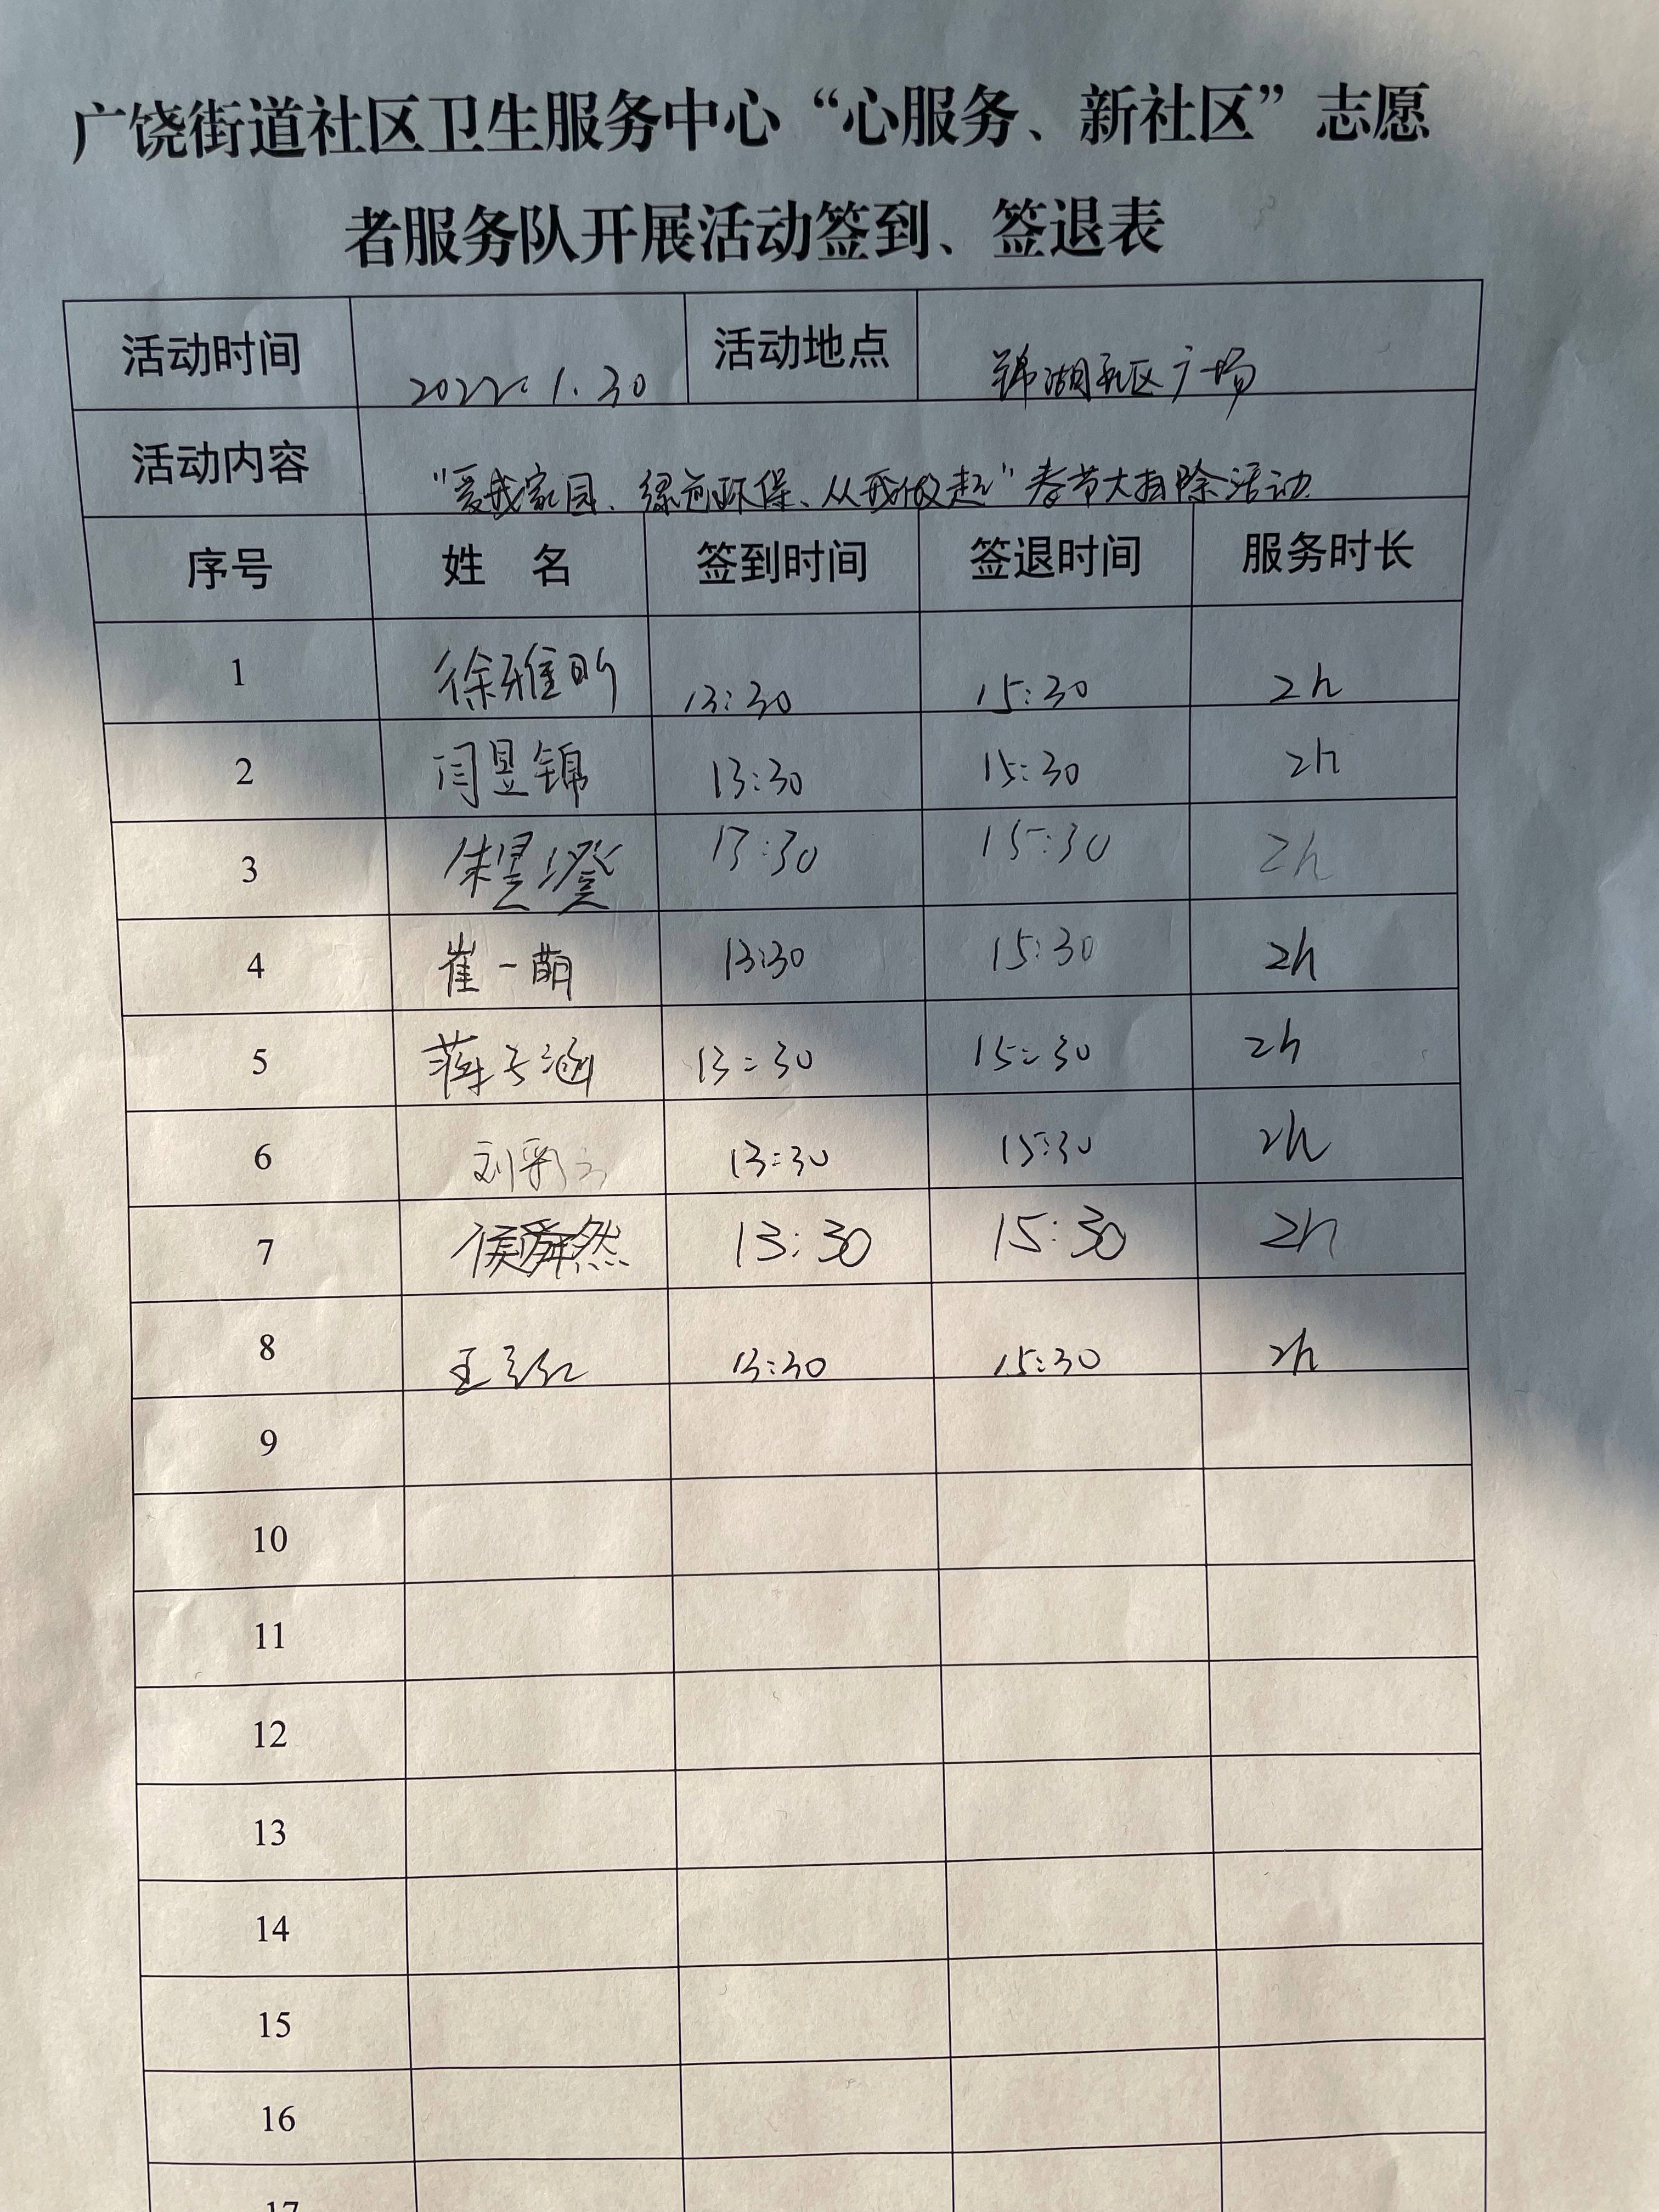 广饶街道社区卫生服务中心“心服务、新社区”志愿
者服务队开展活动签到、签退表
活动时间 2022.1.30 活动地点 锦湖社区广场
活动内容 “爱我家园、绿色环保、从我做起”春节大扫除活动
序号 姓 名 签到时间 签退时间 服务时长
1 徐雅昕 13:30 15:30 2h
2 闫昱锦 13:30 15:30 2h
3 朱昱澄 13:30 15:30 2h
4 崔一萌 13:30 15:30 2h
5 蒋子涵 13:30 15:30 2h
6 刘 13:30 15:30 2h
7 侯舜然 13:30 15:30 2h
8 王 13:30 15:30 2h
9
10
11
12
13
14
15
16
17